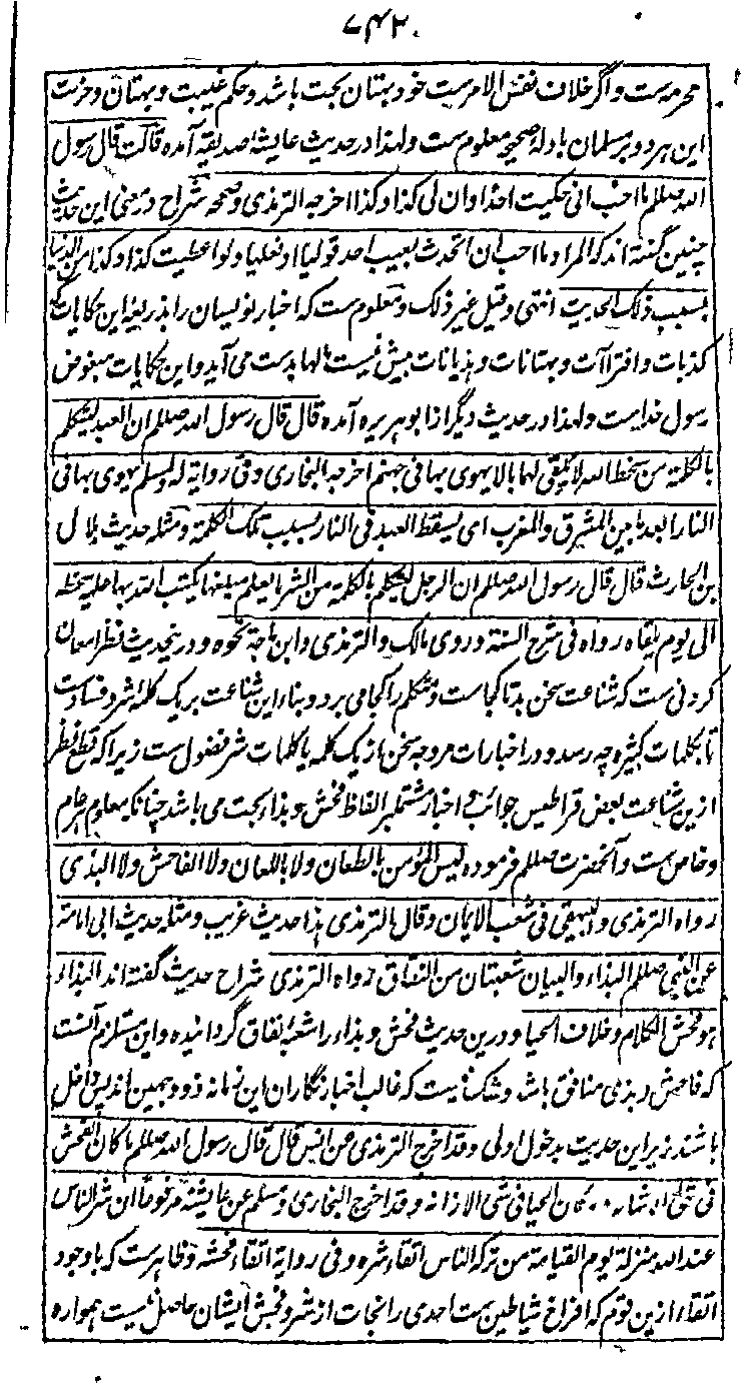 ۷۴۲
محرمه ست و اگر خلاف نفس الامرست خود بهتان بحت باشد و حکم غیبت و بهتان و حرمت
این هر دو بر مسلمان بادلهٔ صحیحه معلوم ست ولهذا در حدیث عایشه صدیقه آمده قالت قال رسول
الله صلعم ما احب انی حکیت احدا وان لی کذا و کذا اخرجه الترمذی وصححه شراح در معنی این حدیث
چنین گفته اند که المراد ما احب ان اتحدث بعیب احد قولیا او فعلیا ولو اعطیت کذا و کذا من الدنیا
بسبب ذلک الحدیث انتهی وقیل غیر ذلک و معلوم ست که اخبار نویسان را بذریعهٔ این حکایات که
کذبات و افترآآت و بهتانات و هذیانات بیش نیست مالها بدست می آید و این حکایات مبغوض
رسول خداست ولهذا در حدیث دیگر از ابو هریره آمده قال قال رسول الله صلعم ان العبد لیتکلم
بالکلمة من سخط الله لا یلقی لها بالا یهوی بها فی جهنم اخرجه البخاری وفی روایة له ولمسلم یهوی بها فی
النار ابعد ما بین المشرق والمغرب ای یسقط العبد فی النار بسبب تلک الکلمة ومثله حدیث بلال
بن الحارث قال قال رسول الله صلعم ان الرجل لیتکلم بالکلمة من الشر ما یعلم مبلغها یکتب الله بها علیه سخطه
الی یوم یلقاه رواه فی شرح السنة وروی مالک والترمذی وابن ماجة نحوه و درینحدیث نظر امعان
کردنی ست که شناعت سخن بد تا کجاست و متکلم را کجا می برد و بناء این شناعت بر یک کلمهٔ شر و فسادست
تا بکلمات کثیره چه رسد و در اخبارات مروجه سخن از یک کلمه یا کلمات شر فضول ست زیرا که قطع نظر
ازین شناعت بعض قراطیس جوائب و اخبار مشتمل بر الفاظ فحش و بذاء بحت می باشد چنانکه معلوم هر عام
و خاص ست و آنحضرت صلعم فرموده لیس المؤمن بالطعان ولا باللعان ولا الفاحش ولا البذی
رواه الترمذی والبیهقی فی شعب الایمان وقال الترمذی هذا حدیث غریب ومثله حدیث ابی امامة
عن النبی صلعم البذاء والبیان شعبتان من النفاق رواه الترمذی شراح حدیث گفته اند البذاء
هو فحش الکلام وخلاف الحیا و درین حدیث فحش و بذاء را شعبهٔ نفاق گردانیده و این مستلزم آنست
که فاحش و بذی منافق باشد و شک نیست که غالب اخبار نگاران این زمانه ذو وجهین اند پس داخل
باشند زیر این حدیث بدخول اولی وقد اخرج الترمذی عن انس قال قال رسول الله صلعم ما کان الفحش
فی شئ الا شانه وما کان الحیا فی شئ الا زانه وقد اخرج البخاری ومسلم عن عایشة مرفوعا ان شر الناس
عند الله منزلة یوم القیامة من ترکه الناس اتقاء شره وفی روایة اتقاء فحشه و ظاهرست که باوجود
اتقاء ازین قوم که افراخ شیاطین ست احدی را نجات از شر و فحش ایشان حاصل نیست همواره